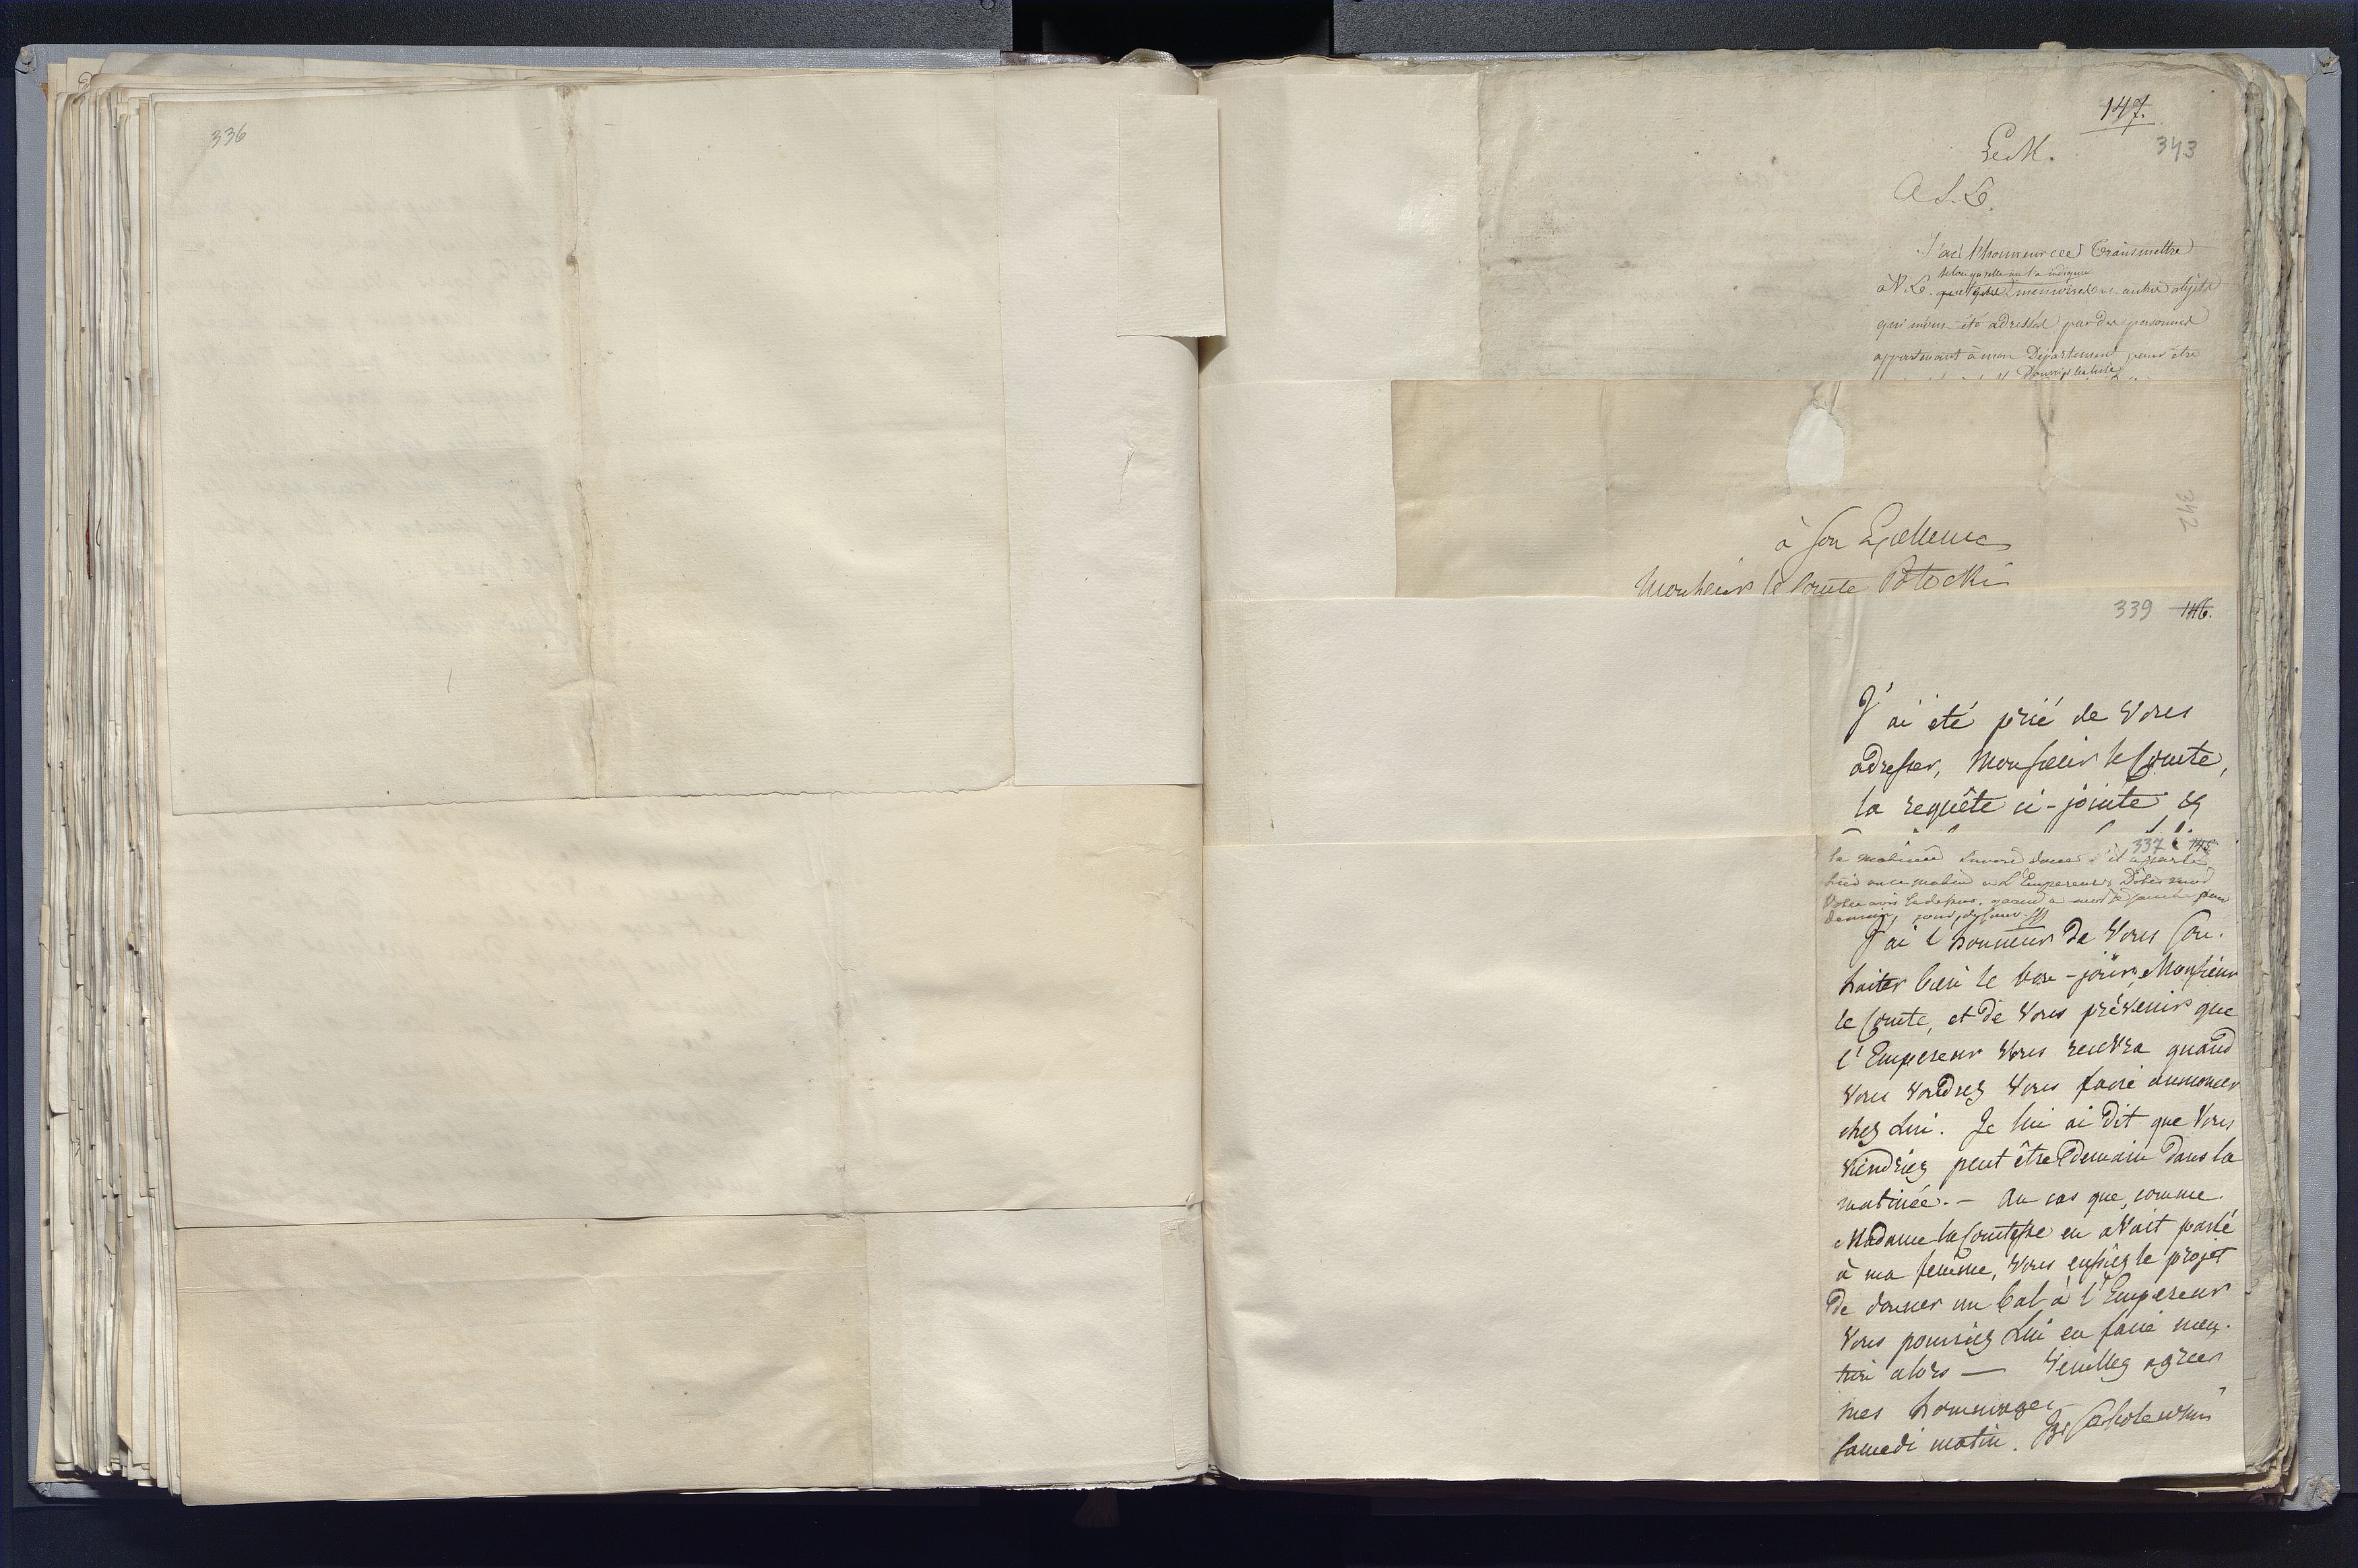 336
147.
343
Le M.
A S. E.
J'ai l'honneur de transmettre
à V. E. quelques mémoires et autres objets
qui m'ont été adressés par des personnes
appartenant à mon Département pour être
342
à Son Excellence
Monsieur le Comte Potocki
339 146.
J'ai été prié de Vous
adresser, Monsieur le Comte,
la requête ci-jointe &
337 145
la matinée
ce matin à l'Empereur;
Votre avis
demain, pour
J'ai l'honneur de Vous sou-
haiter bien le bon-jour, Monsieur
le Comte, et de Vous prévenir que
l'Empereur Vous recevra quand
Vous voudrez Vous faire annoncer
chez Lui. Je lui ai dit que Vous
viendriez peut être demain dans la
matinée. – Au cas que, comme
Madame la Comtesse en avait parlé
à ma femme, Vous eussiez le projet
de donner un bal à l'Empereur
Vous pourriez Lui en faire men-
tion alors — Veuillez agréer
mes hommages
Samedi matin.